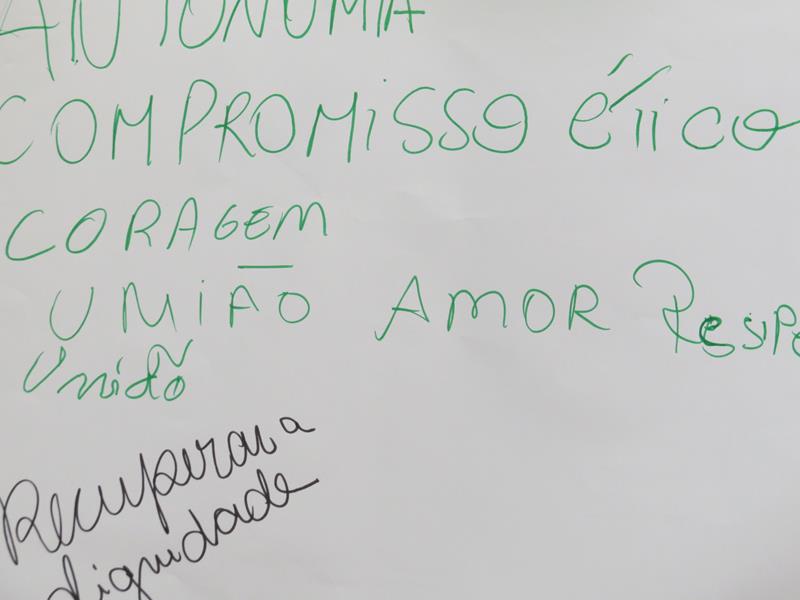 AUTONOMIA
COMPROMISSO ÉTICO
CORAGEM
UNIÃO AMOR RESPE
União
Recuperar a
dignidade